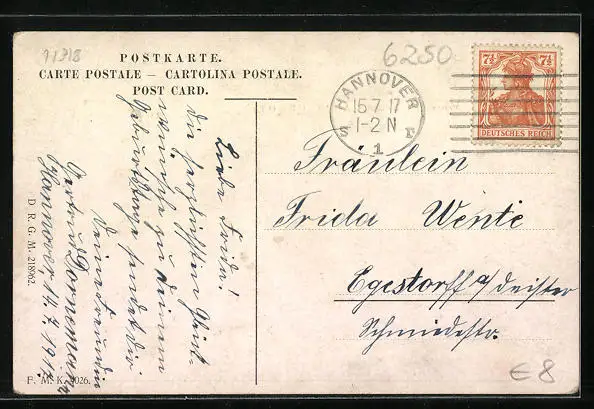 71318
POSTKARTE.
CARTE POSTALE — CARTOLINA POSTALE.
POST CARD.
6250
HANNOVER
15.7.17
1-2 N
S 1 r
7½ 7½
DEUTSCHES REICH
Liebe Frida!
Die herzlichsten Glück-
wünsche zu Deinem
Geburtstage sendet Dir
Deine Freundin
Gertrud Dornemann
Hannover, 14.7.1917.
Fräulein
Frida Wente
Egestorff a/Deister
Schmiedestr.
D. R. G. M. 218962.
F. M. K. 2026.
€8